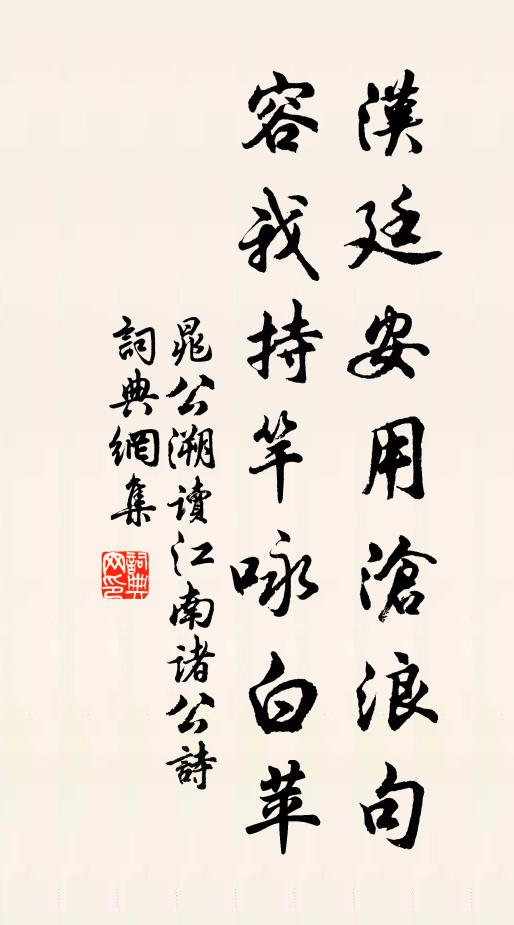 漢廷安用滄浪句
容我持竿咏白苹
晁公溯讀江南諸公詩
詞典網集
詞典
网印